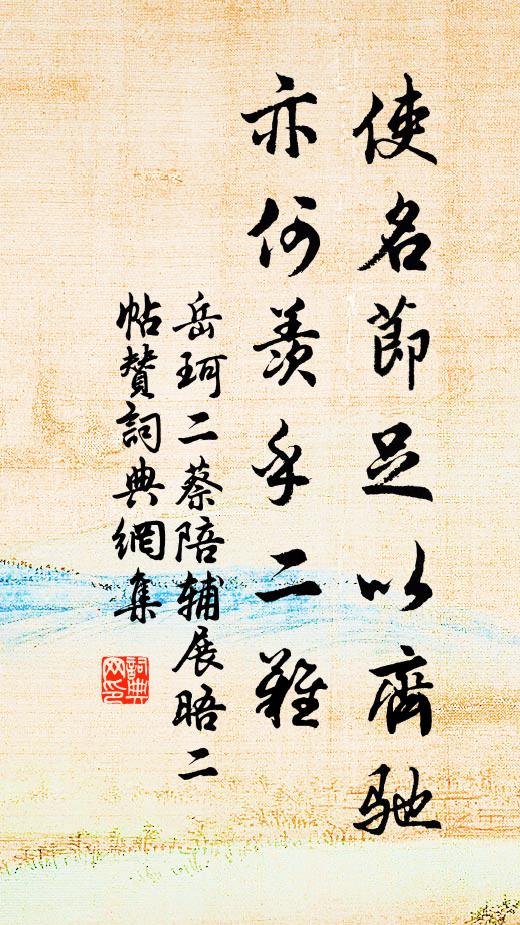 使名節足以齊馳
亦何羨乎二難
岳珂二蔡陪輔展晤二
帖贊詞典網集
詞典網印